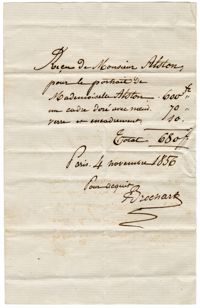 Reçu de Monsieur Alston,
pour le portrait de
Mademoiselle Alston 600 f
un cadre doré avec 70
verre et encadrement, 10
Total 680 f
Paris. 4 novembre 1856
Pour acquit
Brochart